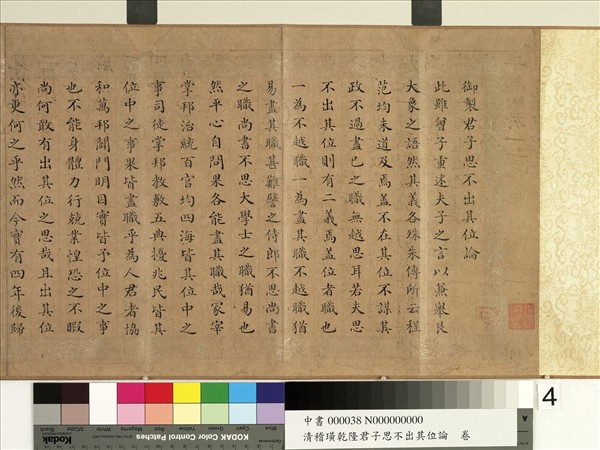 御製君子思不出其位論
此雖曾子重述夫子之言以無異艮
大象之語然其義各殊朱傳所云程
范均未道及焉蓋不在其位不謀其
政不過盡已之職無越思耳若夫思
不出其位則有二義焉蓋位者職也
一為不越職一為盡其職不越職猶
易盡其職甚難譬之侍郎不思尚書
之職尚書不思大學士之職猶易也
然平心自問果各能盡其職哉冢宰
掌邦治統百官均四海皆其位中之
事司徒掌邦教敷五典擾兆民皆其
位中之事果皆盡職乎為人君者協
和萬邦闢門明目實皆予位中之事
也不能身體力行兢業惶恐之不暇
尚何敢有出其位之思哉且出其位
亦更何之乎然而今實有四年後歸
4
Blue Cyan Green Yellow Red Magenta White 3/Color Black
Kodak KODAK Color Control Patches
A
中書 000038 N000000000
清稽璜乾隆君子思不出其位論 卷